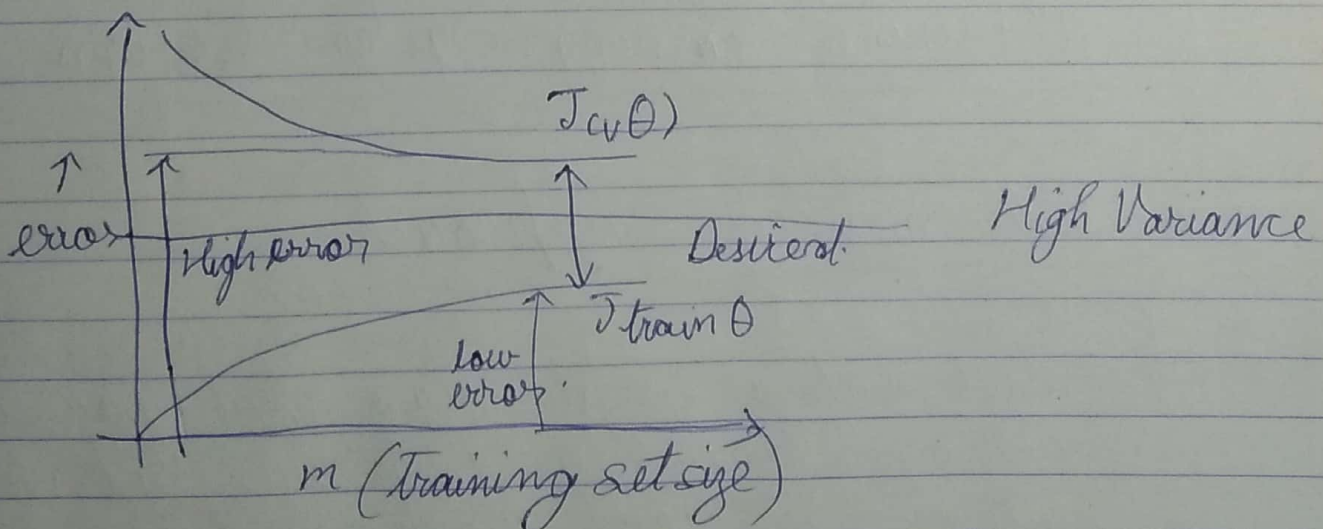 J(vθ)
↑
error
High error
Desierd.
High Variance
J train θ
low
error.
m (Training set size)